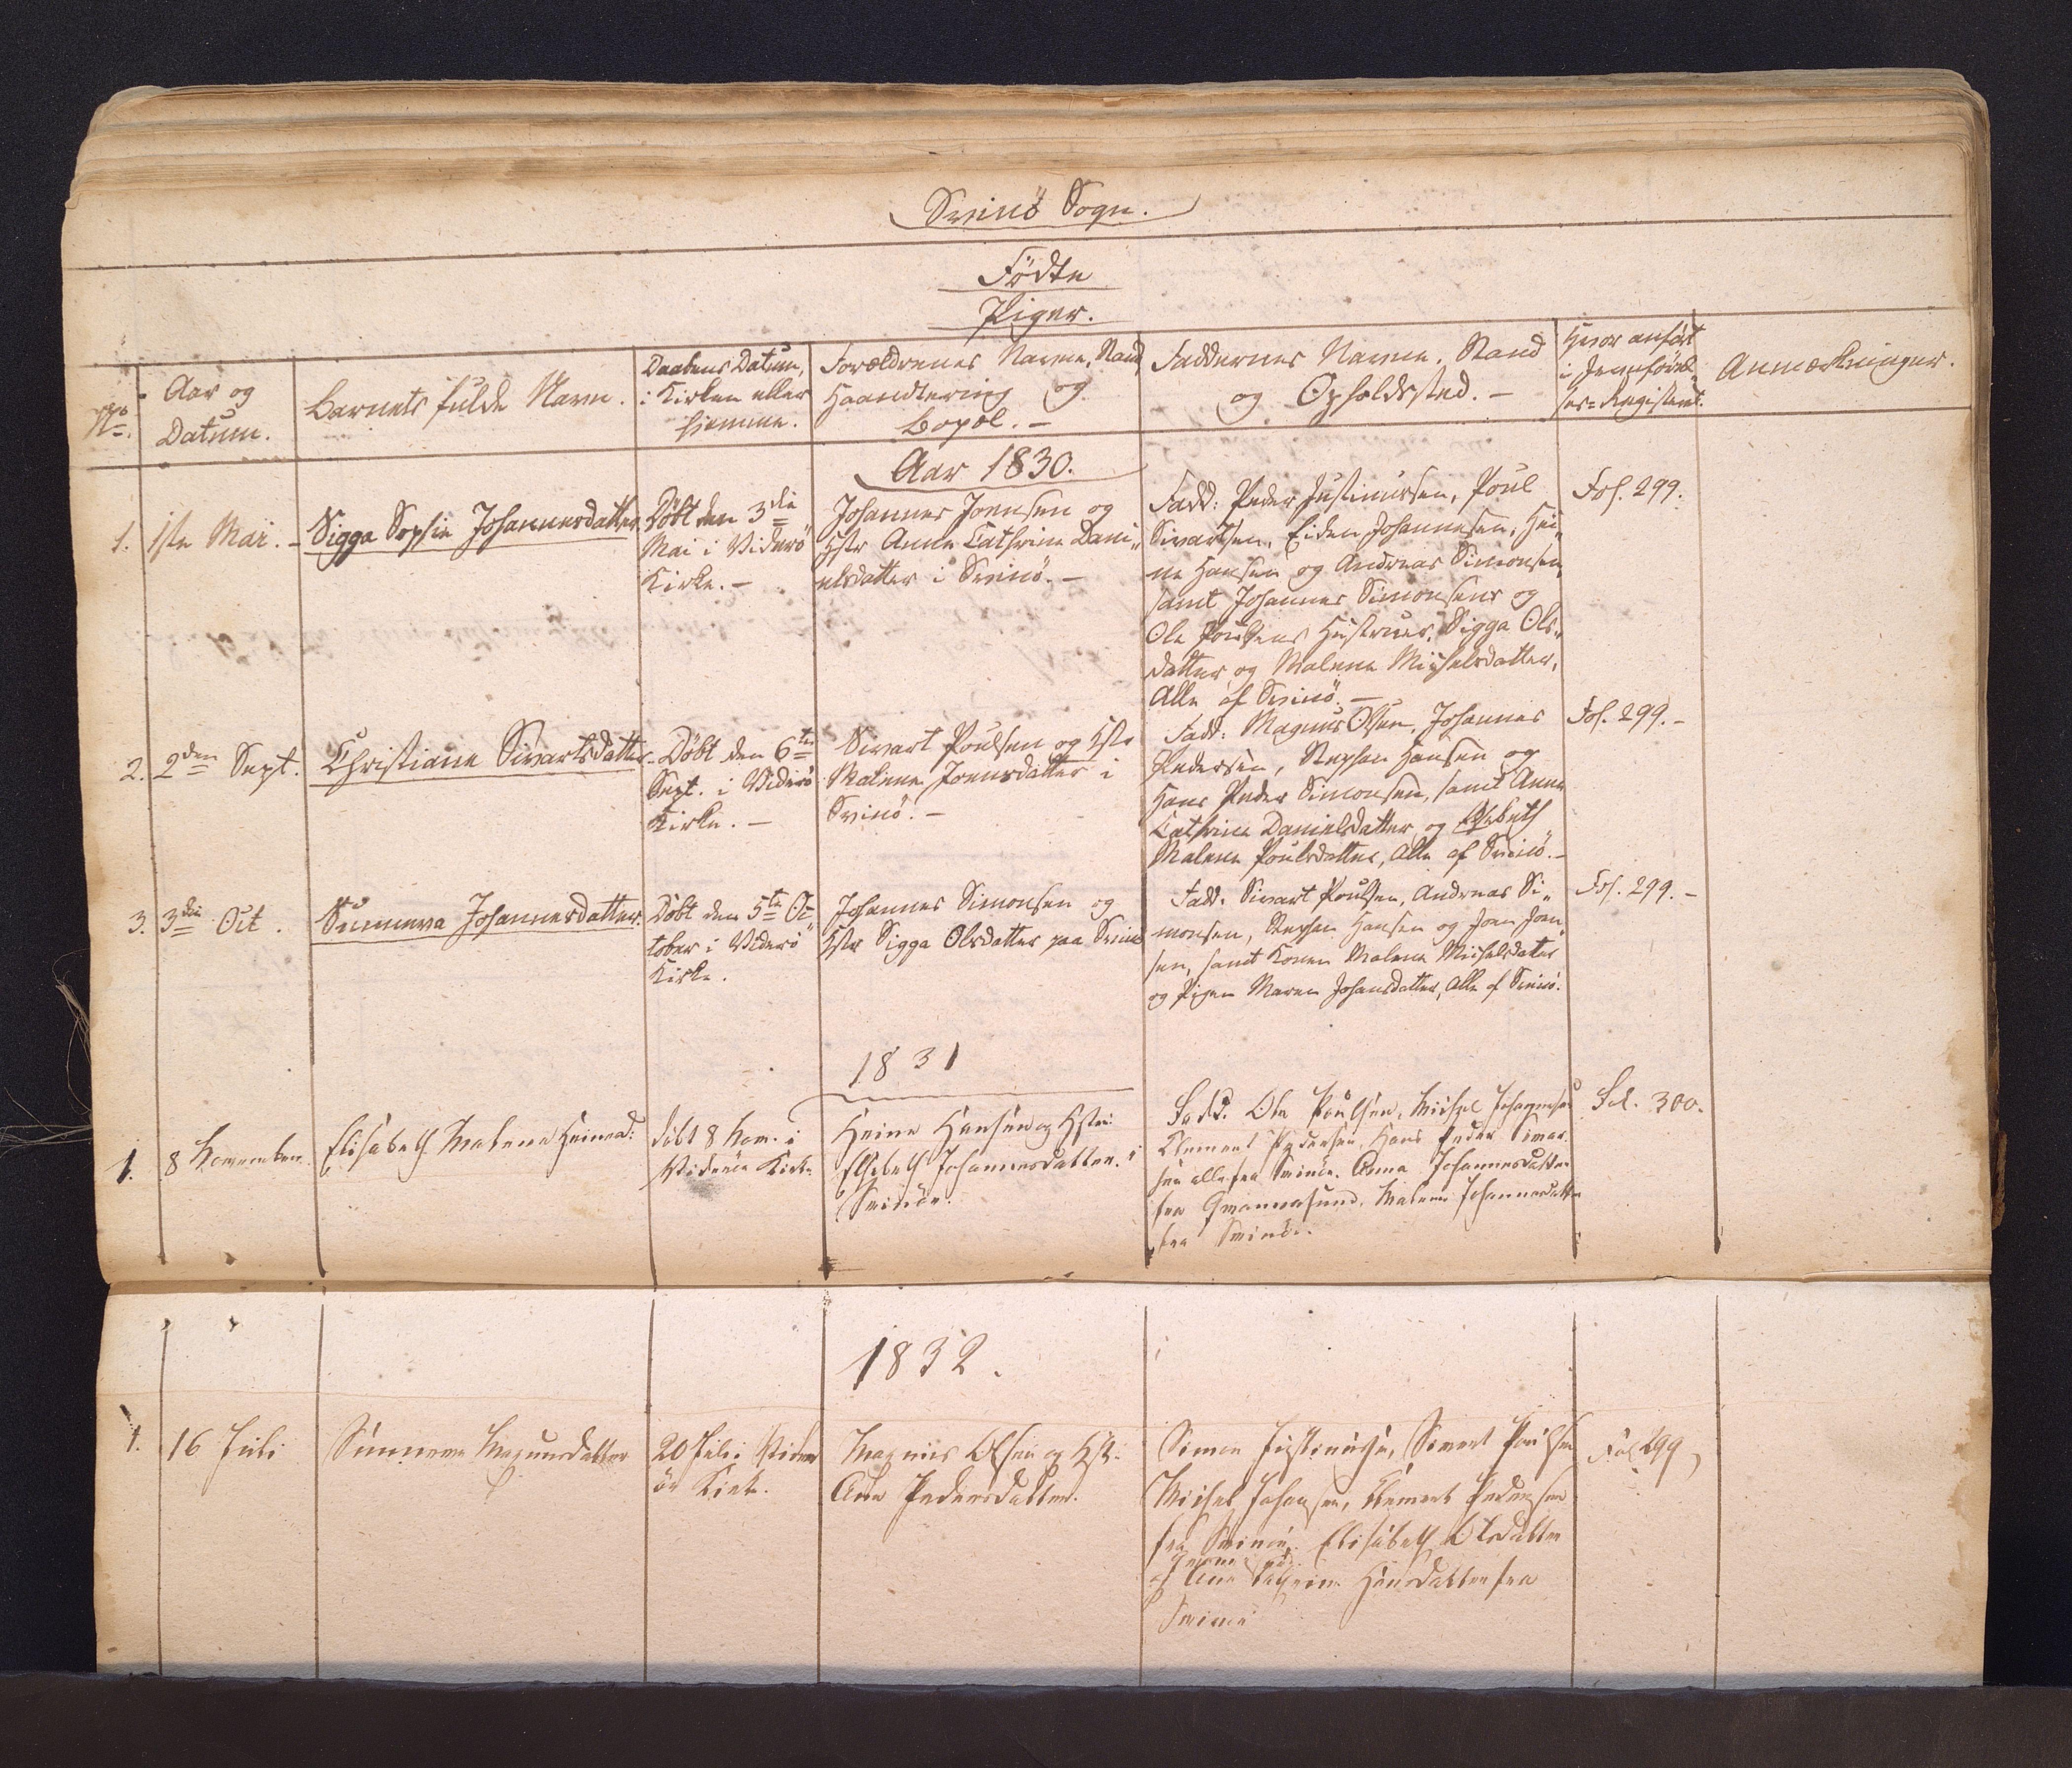 Svinö Sogn.
Födte
Piger.
No.
Aar og
Datum.
Barnets fulde Navn.
Daabens Datum,
i Kirken eller
hiemme.
Forældrenes Navne, Stand
Haandtering og
Bopæl. -
Faddernes Navne, Stand
og Opholdssted. -
Hvor anfört
i Jevnförel-
ses-Registeret.
Anmærkninger.
Aar 1830.
1.
1ste Mai. -
Sigga Sophie Johannesdatter
Döbt den 3die
Mai i Viderö
Kirke. -
Johannes Joensen og
Hstr Anne Cathrine Dani„
elsdatter i Svinö. -
Fadd: Peder Justinussen, Poul
Sivartsen, Eiden Johannesen, Hei„
ne Hansen og Andreas Simonsen,
samt Johannes Simonsens og
Ole Poulsens Hustruer, Sigga Ols„
datter og Malene Michelsdatter,
Alle af Svinö. -
Fol. 299.
2.
2den Sept.
Christiane Sivartsdatter
Döbt den 6te
Sept. i Viderö
Kirke. -
Sivart Poulsen og Hstr
Malene Joensdatter i
Svinö. -
Fadd: Magnus Olsen, Johannes
Pedersen, Stephan Hansen og
Hans Peder Simonsen, samt Anne
Cathrine Danielsdatter og Elsebeth
Malene Poulsdatter, Alle af Svinö. -
Fol. 299. -
3.
3die Oct.
Sunneva Johannesdatter
Döbt den 5te Oc
tober i Viderö
Kirke.
Johannes Simonsen og
Hstr Sigga Olsdatter paa Svinö
Fadd: Sivart Poulsen, Andreas Si„
monsen, Stephan Hansen og Joen Joen„
sen, samt Konen Malene Michelsdatter
og Pigen Maren Johansdatter, Alle af Svinö.
Fol. 299. -
1831
1.
8 November
Elisabeth Malene Heined:
döbt 8 Nov. i
Videröe Kirke
Heine Hansen og Hstr:
Elsebeth Johannesdatter i
Svinöe.
Fadd. Ole Poulsen, Michel Johannesen
Klement Pedersen, Hans Peder Simon
sen alle fra Svinöe. Anna Johannesdatter
fra Qvannasund, Malene Johannesdatter
fra Svinöe.
Fol. 300.
1832.
1.
16 Juli
Sunneva Magnusdatter
20 Juli i Vider
öe Kirke.
Magnus Olsen og Hstr:
Ane Pedersdatter.
Simon Justinusen, Sivert Poulsen
Michel Johansen, Klement Pedersen
fra Svinöe. Elisabeth Olsdatter
Ane Cathrine Hansdatter fra
Svinöe
Fol 299,